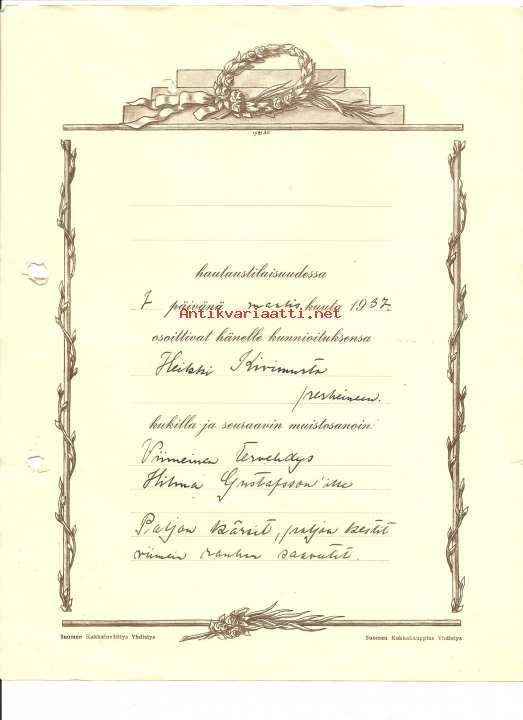 hautaustilaisuudessa
7 päivänä maalis kuuta 1937.
Antikvariaatti.net
osoittivat hänelle kunnioituksensa
Heikki Kivimusta
perheineen.
kukilla ja seuraavin muistosanoin:
Viimeinen tervehdys
Hilma Gustafsson'ille
Paljon kärsit, paljon kestit
viimein rauhan saavutit.
Suomen Kukkainviljys Yhdistys Suomen Kukkakauppias Yhdistys